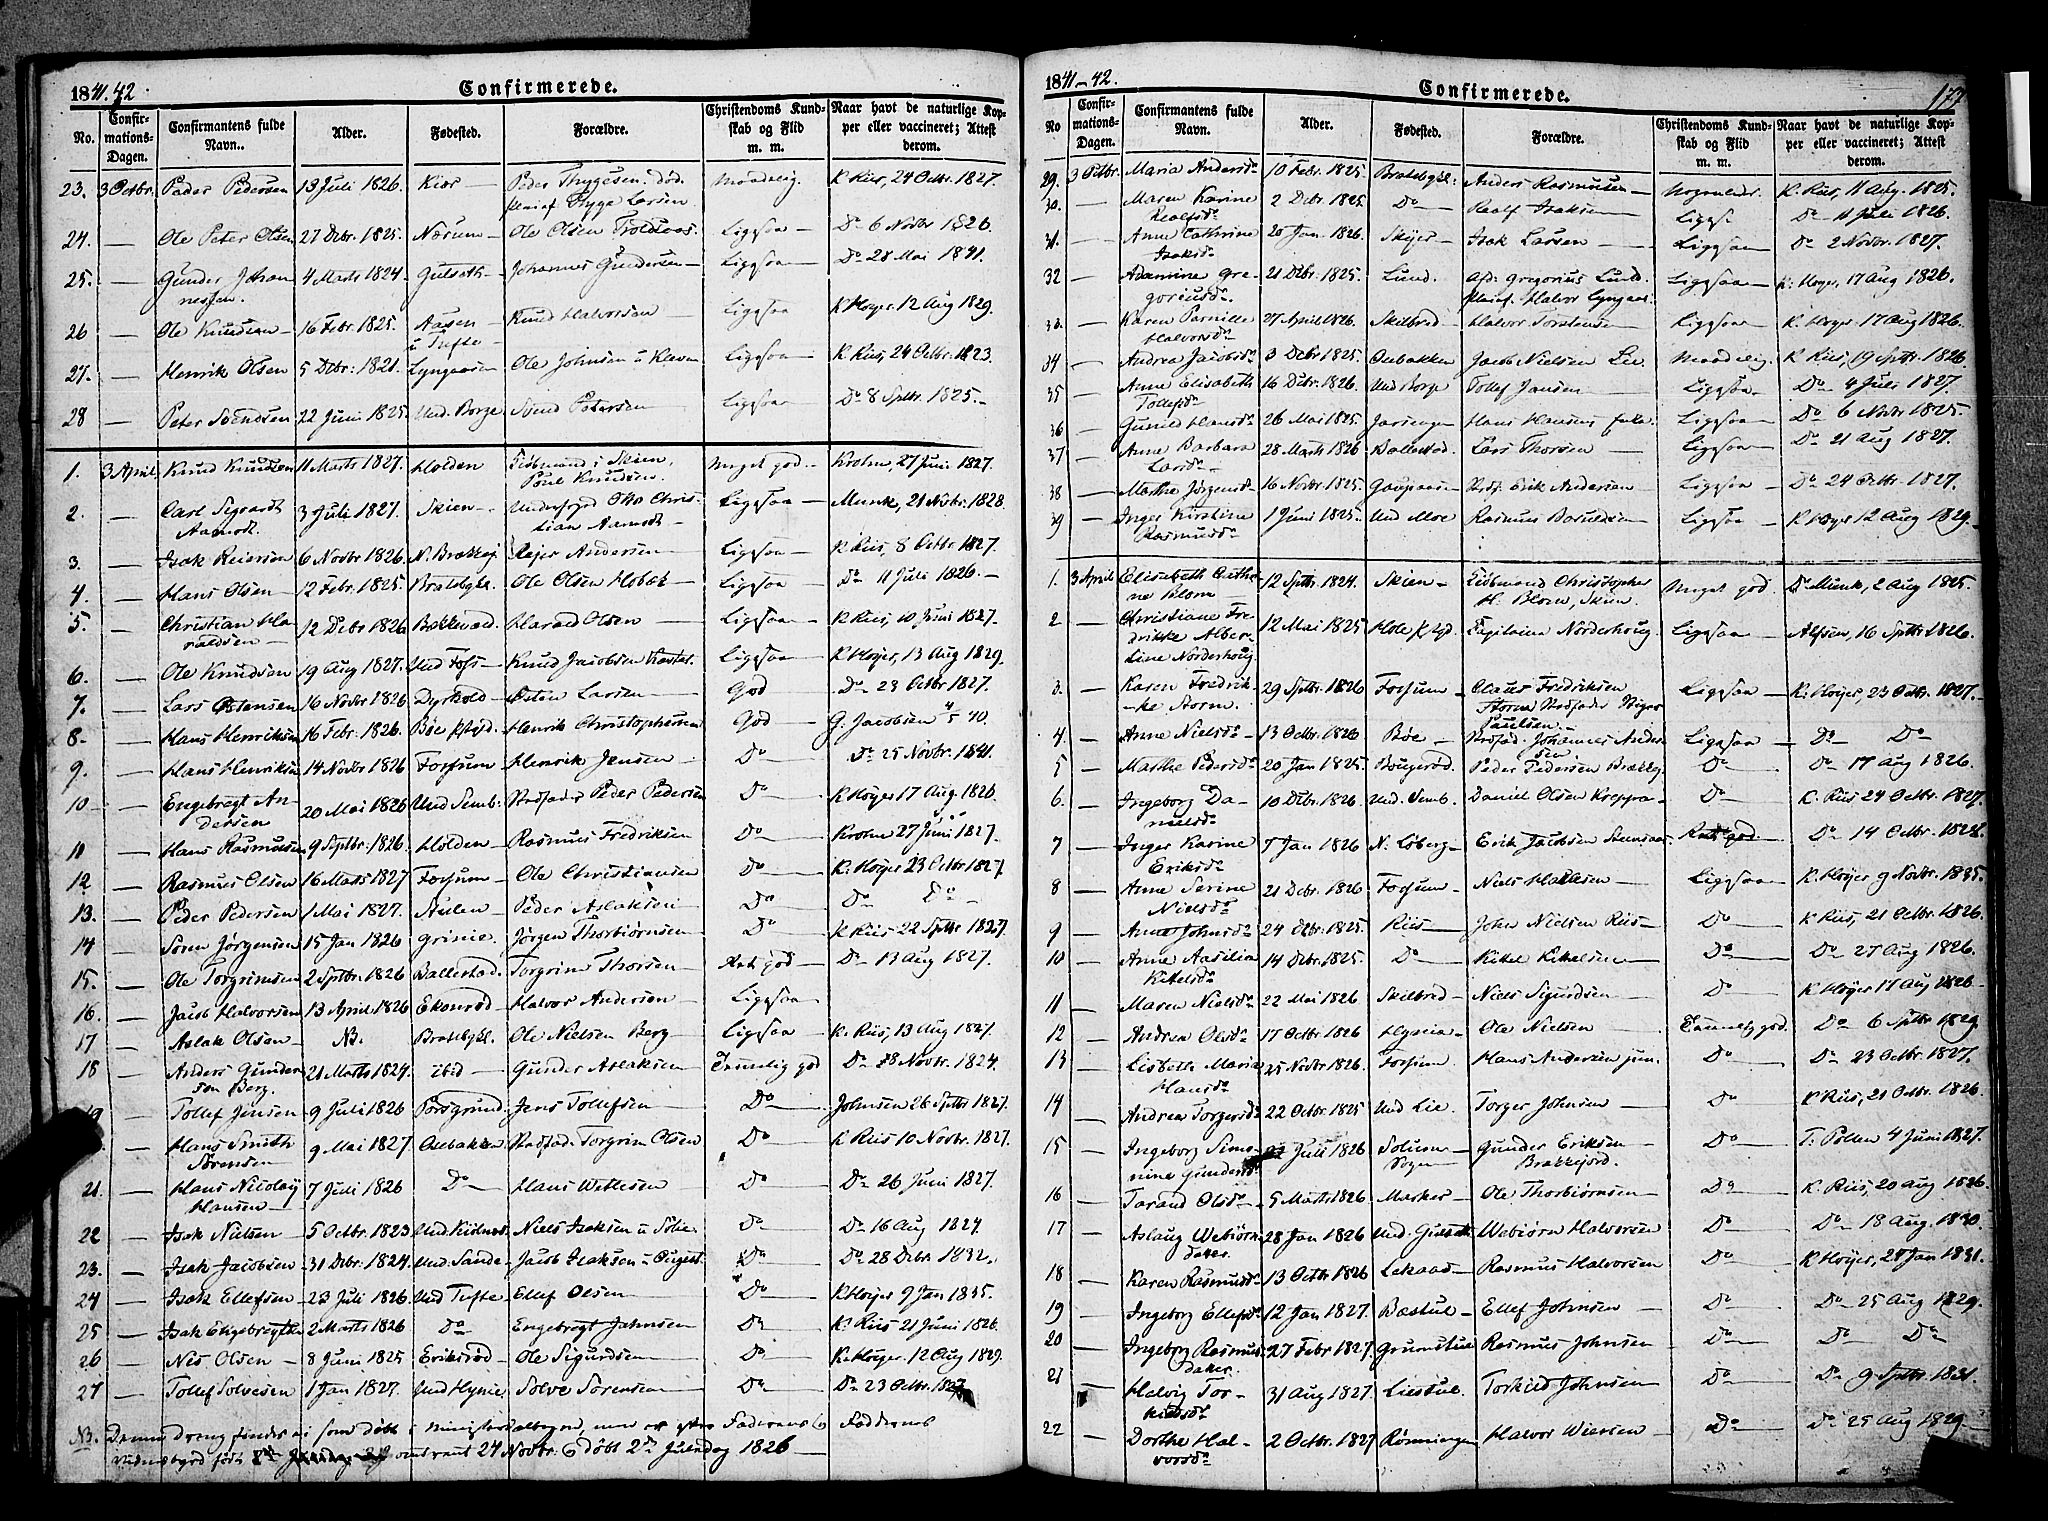 1841.42. Confirmerede.
No. Confirmations-Dagen. Confirmantens fulde Navn. Alder. Fødested. Forældre. Christendoms Kundskab og Flid m. m. Naar havt de naturlige Kopper eller vaccineret; Attest derom.
23. 3 Octbr. Peder Pedersen 13 Juli 1826. Kiør Peder Thygesen. død. K Riis, 24 Octbr. 1827.
Thyge Larsen
24. Ole Peter Olsen 27 Debr. 1825. Nærum Ole Olsen Ligesaa Do 6 Novbr 1826.
25. Gunder Johan- 4 Marts 1824 Gulseth Johannes Gundersen Ligesaa Do 28 Mai 1841.
nessen.
26 Ole Knudsen 16 Febr. 1825. Aasen Knud Halvorsen Ligesaa K Høyer. 12 Aug 1829.
u Tufte
27. Henrik Olsen 5 Debr: 1821. Ole Johnsen u Kleven Ligesaa K Riis, 24 Octbr. 1823.
28 Peter Svendsen 22 Juni 1825. Und. Borge Svend Petersen Ligesaa Do 8 Septbr. 1825.
1. 3 April Knud Knudsen 11 Marts 1827. Holden i Skien, Meget god Krohn, 27 Juni 1827.
Poul Knudsen.
2. Carl Sigvardt 3 Juli 1827. Skien Otto Chris- Ligesaa Munk, 21 Novbr. 1828.
Aamodt. tian Aamodt
3. Isak Reiersen 6 Novbr 1826. N. Brækkej Rejer Andersen Ligesaa K Riis, 8 Octbr 1827.
4. Hans Olsen 12 Febr. 1825. Bratsbgkl. Ole Olsen Hobæk Ligesaa Do 11 Juli 1826.
5. Christian Ha- 12 Debr 1826 Bakkevold Harald Olsen Ligesaa K Riis, 10 Juni 1827.
raldsen
6. Ole Knudsen 19 Aug 1827. Und Foss Knud Jacobsen Ligesaa K Høyer, 13 Aug 1829.
7. Lars Østensen 16 Novbr 1826 Dyrkold Østen Larsen God Do 23 Octbr 1827.
8. Hans Henriksen 16 Febr. 1826. Bøe Henrik Christophersen God G. Jacobsen 4/5 40.
9. Hans Henriksen 14 Novbr 1826 Fossum Henrik Jensen Do Do 25 Novbr. 1841.
10 Engebregt An- 20 Mai 1826 Und Semb. Peder Pedersen Do K Høyer 17 Aug. 1826.
dersen
11 Hans Rasmussen 9 Septbr. 1826. Holden Rasmus Fredriksen Do Krohn 27 Juni 1827.
12 Rasmus Olsen 16 Marts 1827 Fossum Ole Christiansen Do K. Høyer 23 Octbr 1827.
13. Peder Pedersen 1 Mai 1827. Peder Aslaksen Do Do Do
14 Søren Jørgensen 15 Jan 1826 Grinie. Jørgen Thorbiørnsen Do K Riis 22 Septbr 1827.
15. Ole Torgrimsen 2 Septbr. 1826 Ballestad. Torgrim Thorsen god Do 13 Aug 1827.
16. Jacob Halvorsen 13 April 1826 Ekonrød Halvor Andersen Ligesaa
17 Aslak Olsen NB. Bratsbgkl. Ole Nielsen Berg Ligesaa K. Riis, 13 Aug 1827.
18 Anders Gunder- 21 Marts 1824. ibid Gunder Aslaksen Temmelig god Do 28 Novbr. 1824.
sen Berg.
19 Tollef Jensen 9 Juli 1826 Porsgrund Jens Tollefsen Do Johnsen 26 Septbr 1827.
Hans Smith 9 Mai 1827 Ouebakken Torgrim Olsen Do K Riis 10 Novbr. 1827.
Sørensen
21 Hans Nicolay 7 Juli 1826 Do Hans Wettesen Do Do 26 Juni 1827.
Hansen
22 Isak Nielsen 5 Octbr. 1823 Niels Isaksen Do Do 16 Aug 1827.
23. Isak Jacobsen 31 Debr. 1824. Und. Sande Jacob Isaksen Do Do 28 Debr. 1832.
24 Isak Ellefsen 23 Juli 1826. Und Tufte Ellef Olsen Do K Høyer 9 Jan 1835.
25 Isak Engebregtsen 2 Marts 1826 Do Engebregt Johnsen Do K. Riis 21 Juni 1826.
26 Nis Olsen 8 Juni 1825 Eriksrød Ole Sigurdsen Do K. Høyer. 12 Aug 1829.
27 Tollef Solvesen 1 Jan 1827. Und Hynie Solve Sørensen Do Do 23 Octbr. 1827
NB. Denne Dreng findes ei som døbt i Ministerialbogen, men er efter Faderens og Faddernes
Vidnesbyrd født omtrent 24 Novbr. & døbt 2den Juledag 1826
1841-42. Confirmerede. 177
No Confirmations-Dagen. Confirmantens fulde Navn. Alder. Fødested. Forældre. Christendoms Kundskab og Flid m. m. Naar havt de naturlige Kopper eller vaccineret; Attest derom.
29. 3 Octbr. Maria Andersdr 10 Febr. 1825. Bratsbgkl. Anders Rasmussen K. Riis, 11 Aug. 1825.
30. Maren Karine 2 Debr 1825 Do Raalf Isaksen Ligesaa Do 11 Juli 1826.
Raalfsdr
31. Anne Cathrine 20 Jan. 1826. Skyer Isak Larsen Ligesaa Do 2 Novbr. 1827.
Isaksdr
32 Adamine Gre- 21 Debr. 1825. Lund. Afd. Gregorius Lund. Ligesaa K. Høyer, 17 Aug 1826.
goriusdr. Halvor Lyngaas.
33. Karen Pernille 27 April 1826. Skilbred Halvor Torstensen Ligesaa K. Høyer 17 Aug 1826.
Halvorsdr
34 Andrea Jacobsdr 3 Debr 1825. Ouebakken Jacob Nielsen Lie. K Riis, 19 Septbr. 1826
35 Anne Elisabeth 16 Debr. 1826. Und Borge Tollef Jansen Ligesaa Do 4 Juli 1827.
Tollefsdr
36 Gunild Hansdr 26 Mai 1825. Hans Hansens Ligesaa Do 6 Novbr 1825.
37 Anne Barbara 28 Marts 1826 Ballestad. Lars Thorsen Ligesaa Do 21 Aug 1827.
Larsdr
38 Marthe Jørgensdr 16 Novbr 1825. Erik Andersen Ligesaa Do 24 Octbr. 1827.
39 Inger Kirstine 1 Juni 1825. Und Moe Rasmus Ligesaa K Høyer 12 Aug 1829.
Rasmusdr
1. 3 April Elisabeth Cathri- 12 Septbr. 1824. Skien Christopher Meget god. Dr Munk, 2 Aug 1825.
ne Blom H. Blom, Skien.
2 Christiane Fre- 12 Mai 1825 Hole Capitaine Norderhoug. Ligesaa Alfsen, 16 Septbr 1826.
drikke Alber-
tine Norderhoug
3. Karen Fredrik- 29 Septbr. 1826 Fossum Claus Fredriksen Ligesaa K. Høyer, 23 Octbr. 1827.
ke Storm. Storm
Paulsen
4. Anne Nielsdr 13 Octbr. 1826 Bøe Johannes Ander- Ligesaa Do Do
sen
5 Marthe Pedersdr 20 Jan 1825. Bougerød. Peder Pedersen Brækkej. Do Do 17 Aug 1826.
6. Ingeborg Da- 10 Debr. 1826. Und. Semb. Daniel Olsen Do K. Riis 24 Octbr. 1827.
nielsdr
7 Inger Karine 7 Jan 1826 N. Løberg Erik Jacobsen god Do 14 Octbr. 1828.
Eriksdr
8 Anne Serine 21 Debr. 1826 Fossum Niels Ligesaa K. Høyer 9 Novbr. 1835.
Nielsdr
9 Anne Johnsdr 24 Debr. 1825. Riis John Nielsen Riis Do K Riis, 21 Octbr. 1826.
10 Anne Aasilia 14 Debr. 1825. Do Kittel Kittelsen Do Do 27 Aug 1826.
Kittelsdr
11 Maren Nielsdr 22 Mai 1826 Skilbred Niels Sigurdsen Do K Høyer 17 Aug 1826
12 Andrea Olsdr 17 Octbr. 1826 Ole Nielsen Temmelig god. Do 6 Septbr 1829.
13 Lisbeth Maria 25 Novbr. 1826 Fossum Hans Andersen jun. Do Do 23 Octbr 1827.
Hansdr
14 Andrea Torgersdr 22 Octbr. 1825 Und Lie Torger Johnsen Do K Riis, 21 Octbr. 1826
15 Ingeborg Simo- Juli 1826 Solum Gunder Eriksen Do T. Pollen 4 Juni 1827.
nine Gundersdr Sogn Brækkejord.
16 Tarand Olsdr 5 Marts 1826 Ole Thorbiørnsen Do K. Riis, 20 Aug 1826.
17 Aslaug Webiørns 28 Jan 1826 Und. Webiørn Halvorsen Do Do 18 Aug. 1830.
datter.
18 Karen Rasmusdr 13 Octbr 1826 Rasmus Halvorsen Do K Høyer, Jan 1831.
19 Ingeborg Ellefsdr 12 Jan 1827. Bæstul Ellef Johnsen Do Do 25 Aug 1829.
20 Ingeborg Rasmus 27 Febr 1827. Rasmus Johnsen Do Do Do
datter.
21 Helvig Tor- 31 Aug 1827 Liestul. Torkild Johnsen Do Do 9 Septbr. 1831.
kildsdr
22 Dorthe Hal- 2 Octbr. 1827 Rønningen Halvor Do Do 25 Aug 1829.
vorsdr